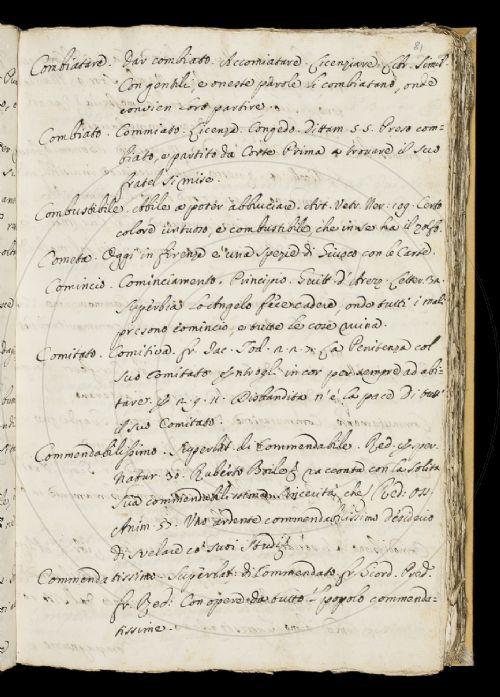 81
Combiatare. Dar combiato. Accomiatare. Licenziare.
Con gentili, e oneste parole li combiatano, onde
convien loro partire.
Combiato. Commiato. Licenza. Congedo. Dittam. 5. 5. Preso com-
biato, e partito da Corte Prima a trovare il suo
fratel si mise.
Combustibile. Abile a poter abbruciare. Art. Vetr. Ner: 109. Certo
colore untuoso, e combustibile, che in se ha il zolfo.
Cometa. Oggi in Firenze è una spezie di Giuoco con le Carte.
Comincio. Cominciamento. Principio. Guitt. d'Arezo. Letter.
Superbia Lo Angelo fece cadere, onde tutti i mali
presono comincio, e tutte le cose ruina.
Comitato. Comitiva. fr. Iac. Tod. La Penitenza col
suo Comitato in cor per sempre ad abi-
tare. Disbandita n'è la pace Di tutt'
il suo Comitato.
Commendabilissimo. Superlat. di Commendabile. Red. esper.
natur. 30. Ruberto Boile racconta con la solita
sua commendabilissima sincerità, che Red: Oss.
Anim. 57. Uno ardente commendabilissimo desiderio
di svelare co' suoi Studi
Commendatissimo. Superlat: di Commendato. fr. Giord. Pred.
fr. Red: Con opere da tutto 'l popolo commenda-
tissime.